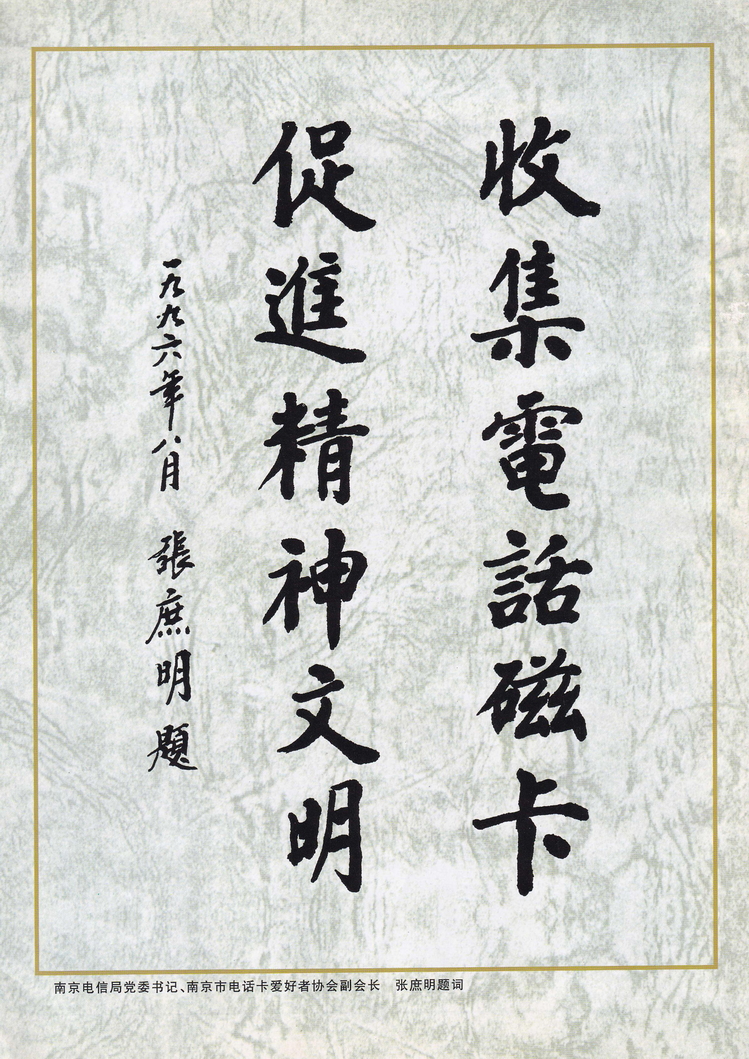 收集電話磁卡
促進精神文明
一九九六年八月 張庶明題
南京电信局党委书记、南京市电话卡爱好者协会副会长 张庶明题词